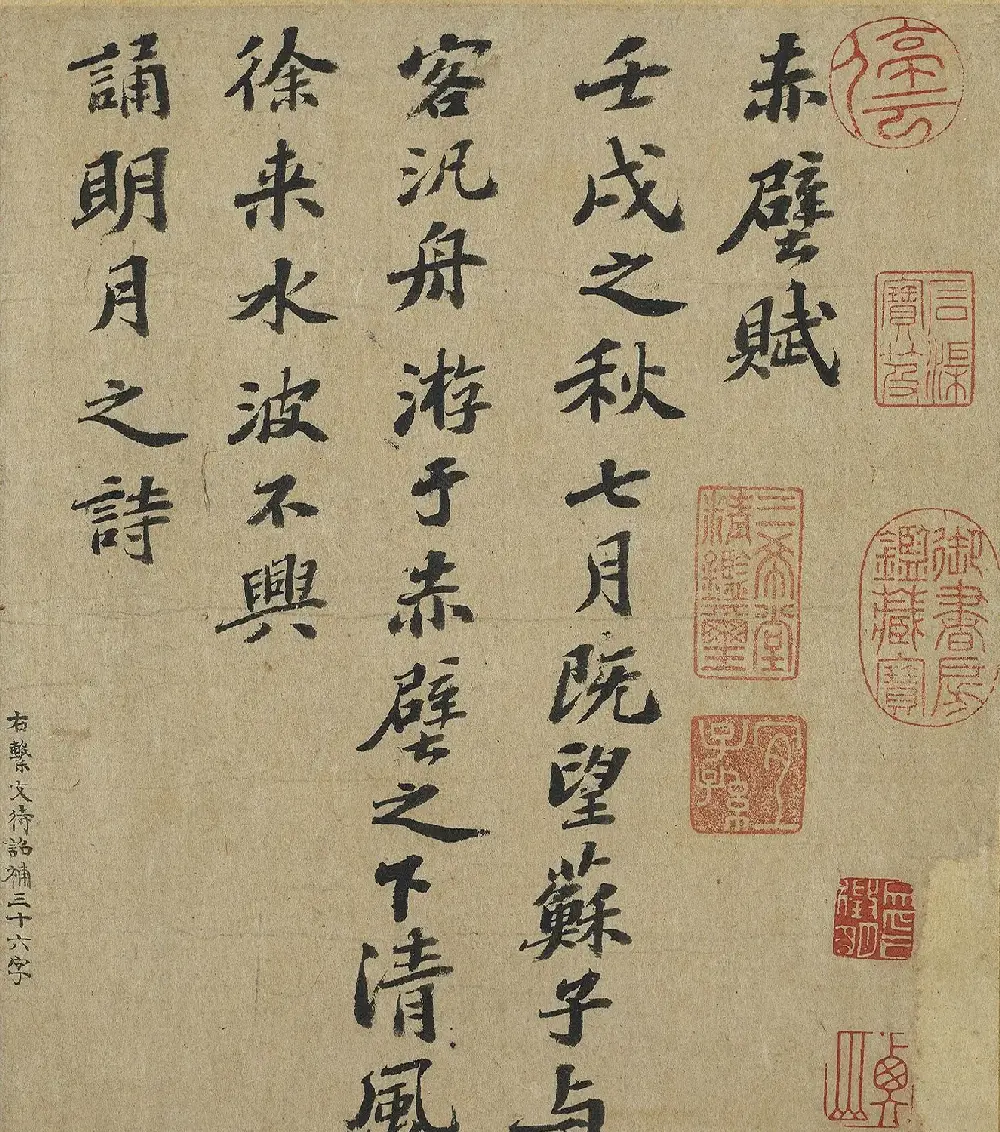 赤壁賦
壬戌之秋七月既望蘇子与
客汎舟游于赤壁之下清風
徐来水波不興
誦明月之詩
右繫文待詔補三十六字
停雲
石渠寶笈
御書房鑑藏寶
三希堂精鑑璽